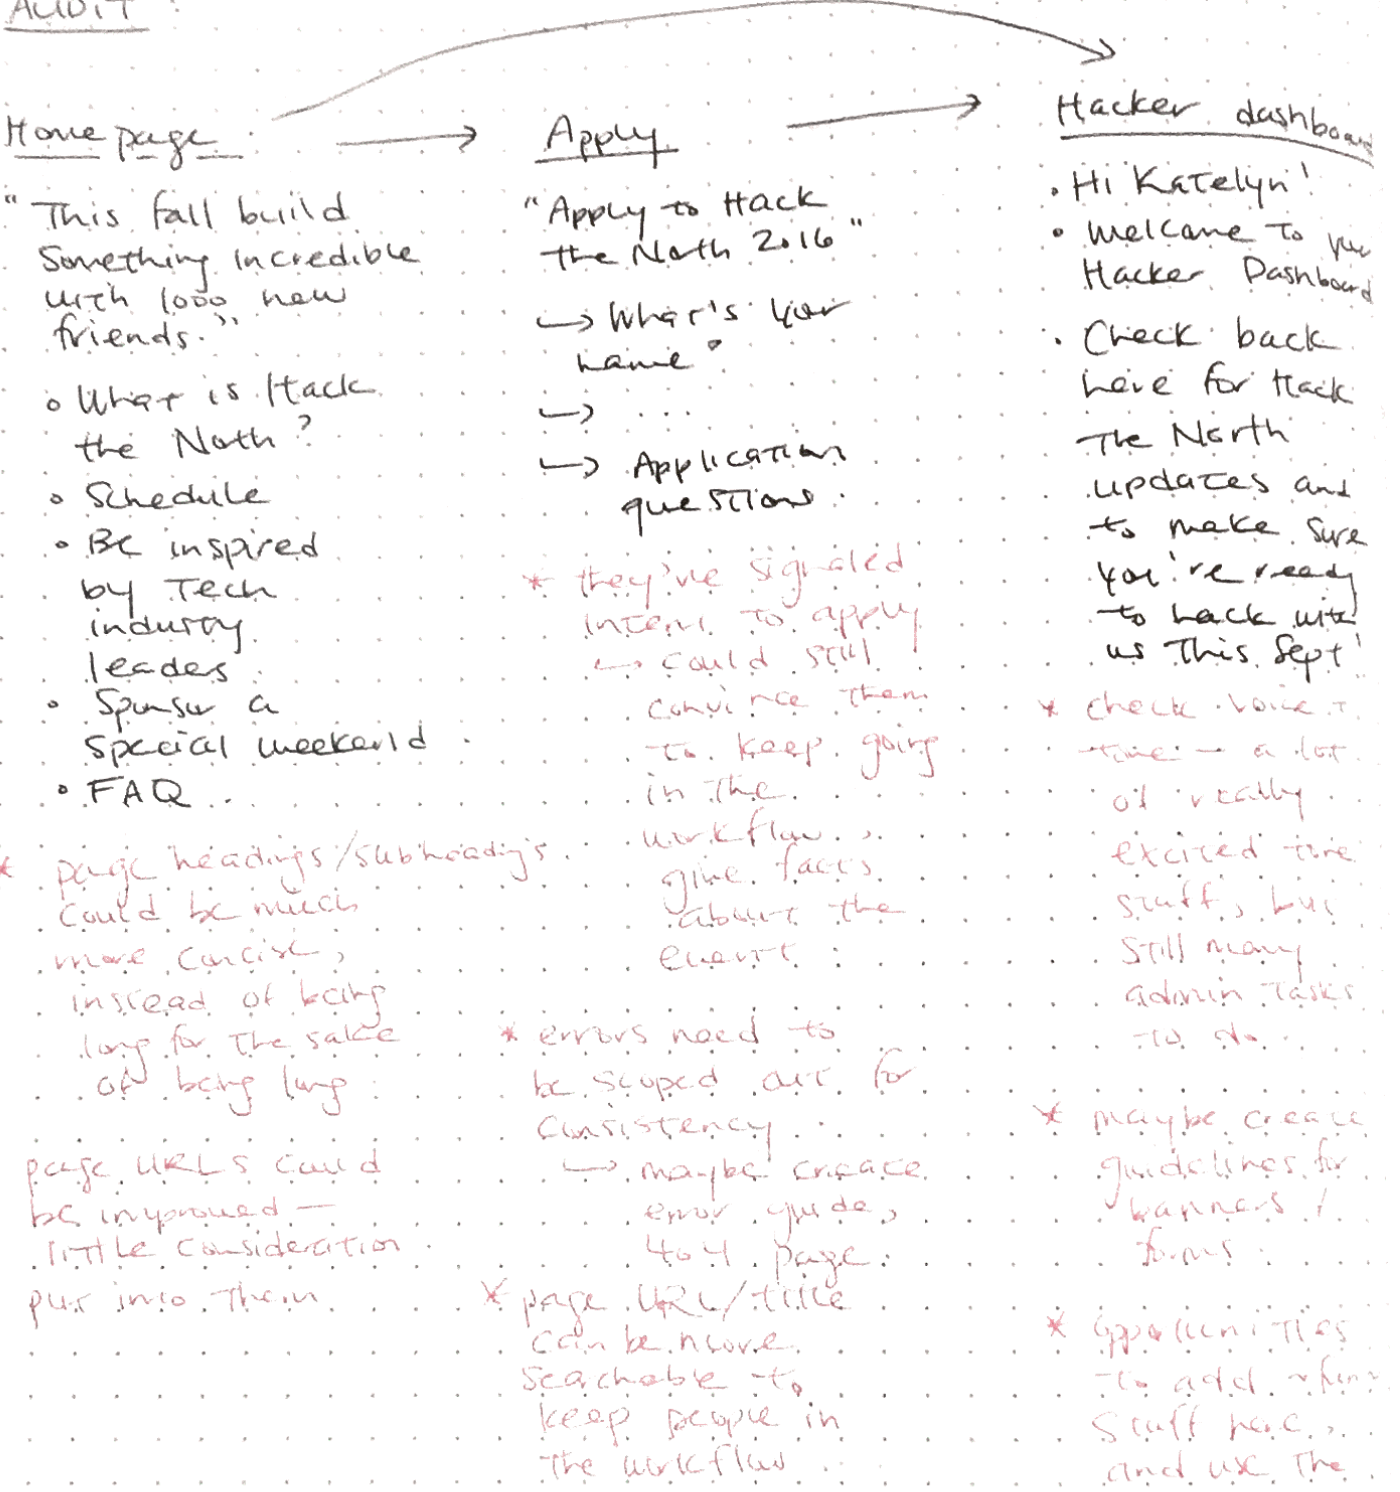 AUDIT
Home page
"This fall build
Something incredible
with 1000 new
friends."
What is Hack
the North?
Schedule
Be inspired
by Tech
industry
leaders
Sponsor a
special weekend
FAQ
* page headings/subheadings
could be much
more concise,
instead of being
long for the sake
of being long
page URLs could
be improved —
little consideration
put into them
Apply
"Apply to Hack
the North 2016"
→ What's your
name?
→ ...
→ Application
questions
* they've signaled
intent to apply
→ could still
convince them
to keep going
in the
workflow,
give facts
about the
event
* errors need to
be scoped out for
consistency
→ maybe create
error guide,
404 page
* page URL/title
can be more
searchable to
keep people in
the workflow
Hacker dashboard
• Hi Katelyn!
• Welcome to your
Hacker Dashboard
• Check back
here for Hack
The North
updates and
to make sure
you're ready
to hack with
us this Sept!
* check voice +
tone — a lot
of really
excited tone
stuff, but
still many
admin tasks
to do
* maybe create
guidelines for
banners /
forms
* opportunities
to add
stuff here,
and use the